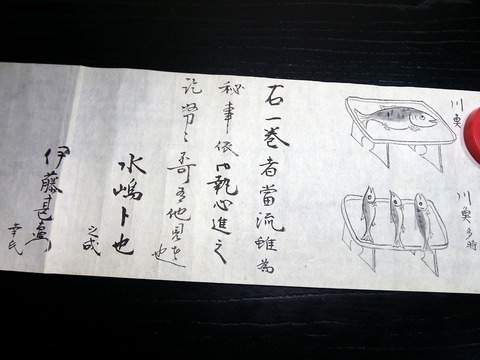 川魚
川魚多時
右一巻者當流雖為
秘事依御執心進之
訖努々不可有他見者也
水嶋卜也
之成
伊藤甚
幸氏